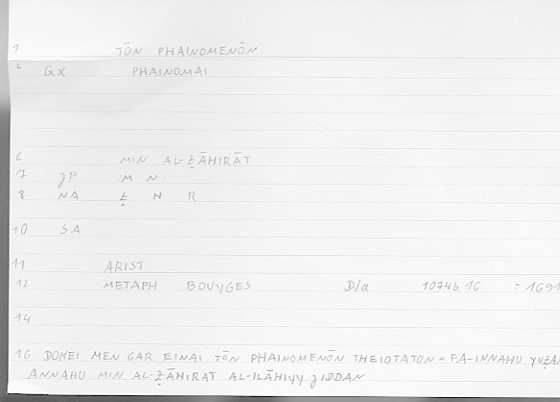 1 TŌN PHAINOMENŌN
2 GX PHAINOMAI
6 MIN AL-ẒĀHIRĀT
7 JP M N
8 NA Ẓ H R
10 SA
11 ARIST
12 METAPH BOUYGES D/a 1074b 16 = 1691
14
16 DOKEI MEN GAR EINAI TŌN PHAINOMENŌN THEIOTATON = FA-INNAHU
ANNAHU MIN AL-ẒĀHIRAT AL-ILĀHIYY JIDDAN